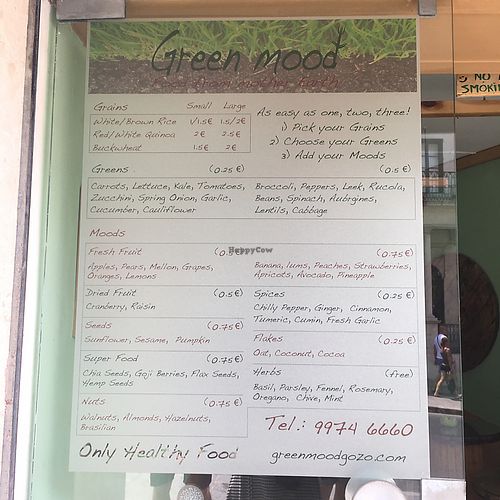 Green mood
Grains Small Large
White/Brown Rice 1/1.5€ 1.5/2€
Red/White Quinoa 2€ 2.5€
Buckwheat 1.5€ 2€
As easy as one, two, three!
1) Pick your Grains
2) Choose your Greens
3) Add your Moods
Greens (0.25 €)
Carrots, Lettuce, Kale, Tomatoes,
Zucchini, Spring Onion, Garlic,
Cucumber, Cauliflower
(0.5 €)
Broccoli, Peppers, Leek, Rucola,
Beans, Spinach, Aubrgines,
Lentils, Cabbage
Moods
Fresh Fruit
Apples, Pears, Mellon, Grapes,
Oranges, Lemons
(0.75 €)
Banana, lums, Peaches, Strawberries,
Apricots, Avocado, Pineapple
Dried Fruit (0.5 €)
Cranberry, Raisin
Spices (0.25 €)
Chilly Pepper, Ginger, Cinnamon,
Tumeric, Cumin, Fresh Garlic
Seeds (0.75 €)
Sunflower, Sesame, Pumpkin
Flakes (0.25 €)
Oat, Coconut, Cocoa
Super Food (0.75 €)
Chia Seeds, Goji Berries, Flax Seeds,
Hemp Seeds
Herbs (free)
Basil, Parsley, Fennel, Rosemary,
Oregano, Chive, Mint
Nuts (0.75 €)
Walnuts, Almonds, Hazelnuts,
Brasilian
Tel.: 9974 6660
Only Healthy Food
greenmoodgozo.com
HappyCow
NO
SMOKI